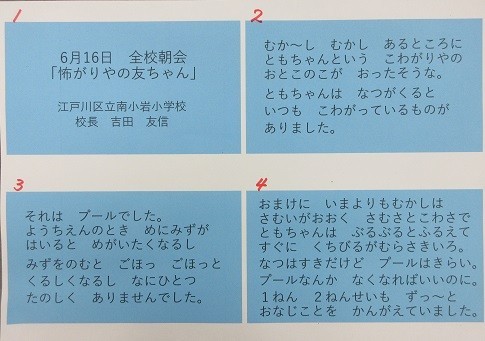 1
6月16日　全校朝会
「怖がりやの友ちゃん」
江戸川区立南小岩小学校
校長　吉田　友信
2
むか～し　むかし　あるところに
ともちゃんという　こわがりやの
おとこのこが　おったそうな。
ともちゃんは　なつがくると
いつも　こわがっているものが
ありました。
3
それは　プールでした。
ようちえんのとき　めにみずが
はいると　めがいたくなるし
みずをのむと　ごほっ　ごほっと
くるしくなるし　なにひとつ
たのしく　ありませんでした。
4
おまけに　いまよりもむかしは
さむいがおおく　さむさとこわさで
ともちゃんは　ぶるぶるとふるえて
すぐに　くちびるがむらさきいろ。
なつはすきだけど　プールはきらい。
プールなんか　なくなればいいのに。
１ねん　２ねんせいも　ずっ～と
おなじことを　かんがえていました。